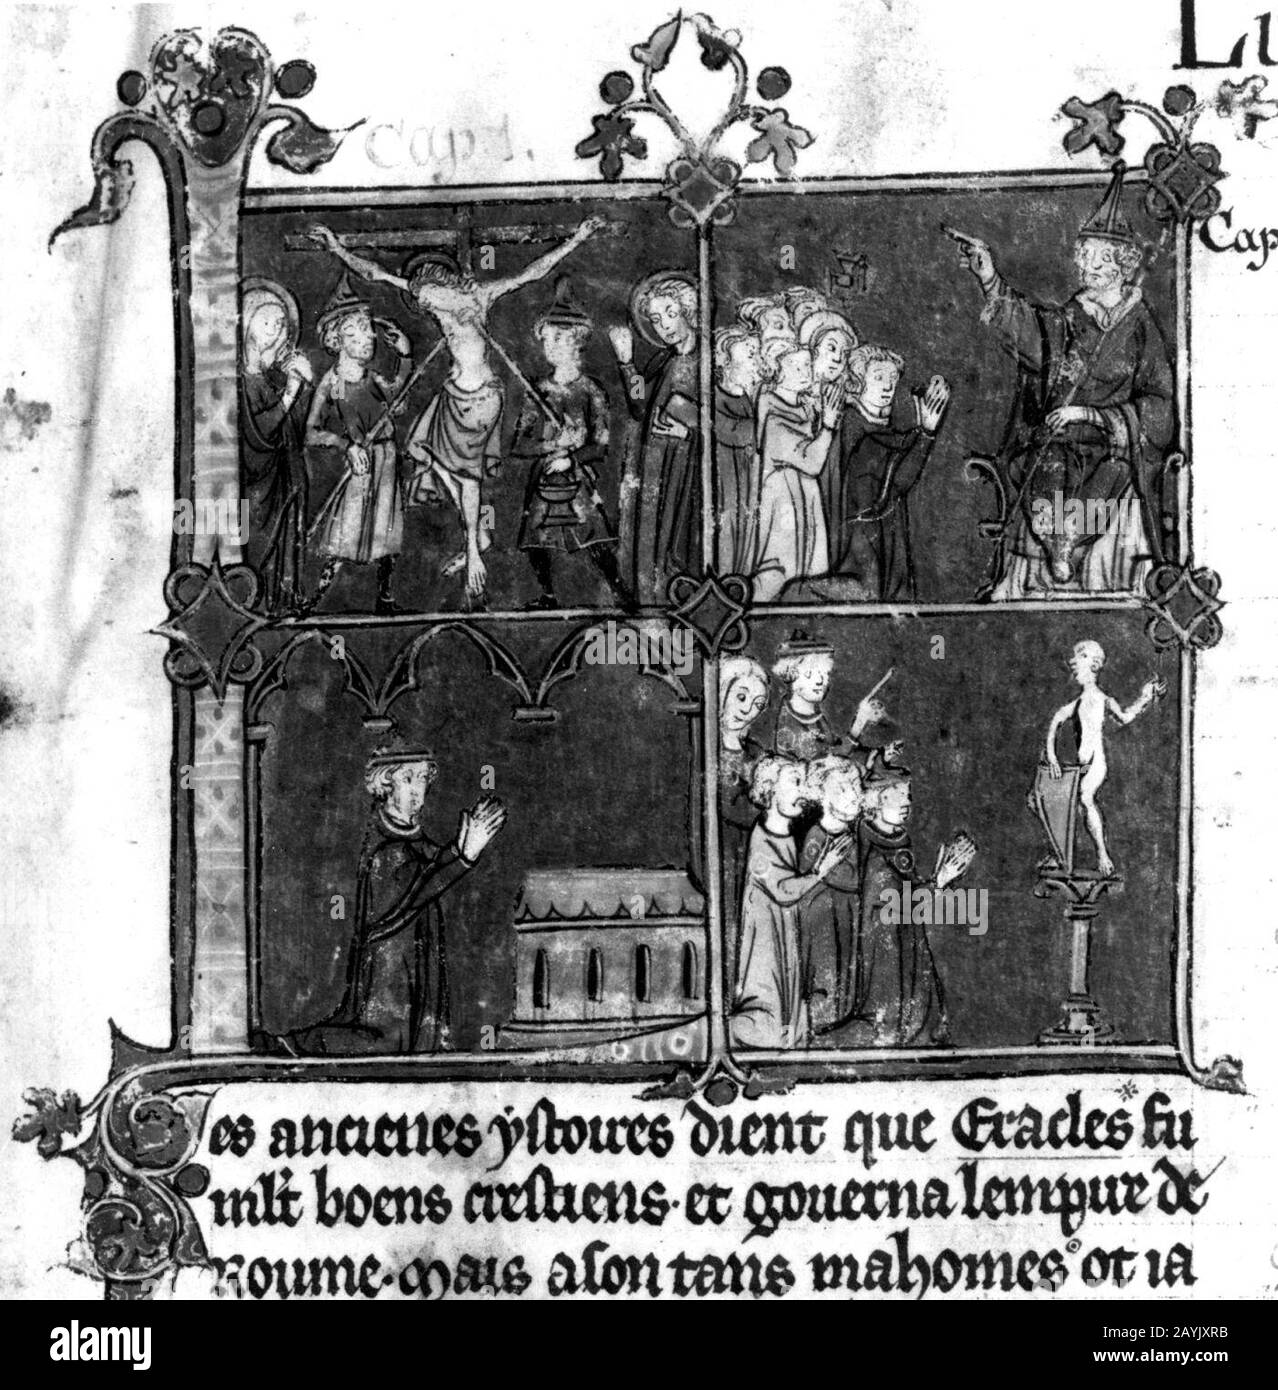 Cap 1.
Cap
es anciens ystoires dient que Eracles fu
mlt boens crestiens · et gouerna lempire de
Roume · Mais a son tans mahomes ot ia
alamy
Image ID: 2AYJXRB
www.alamy.com